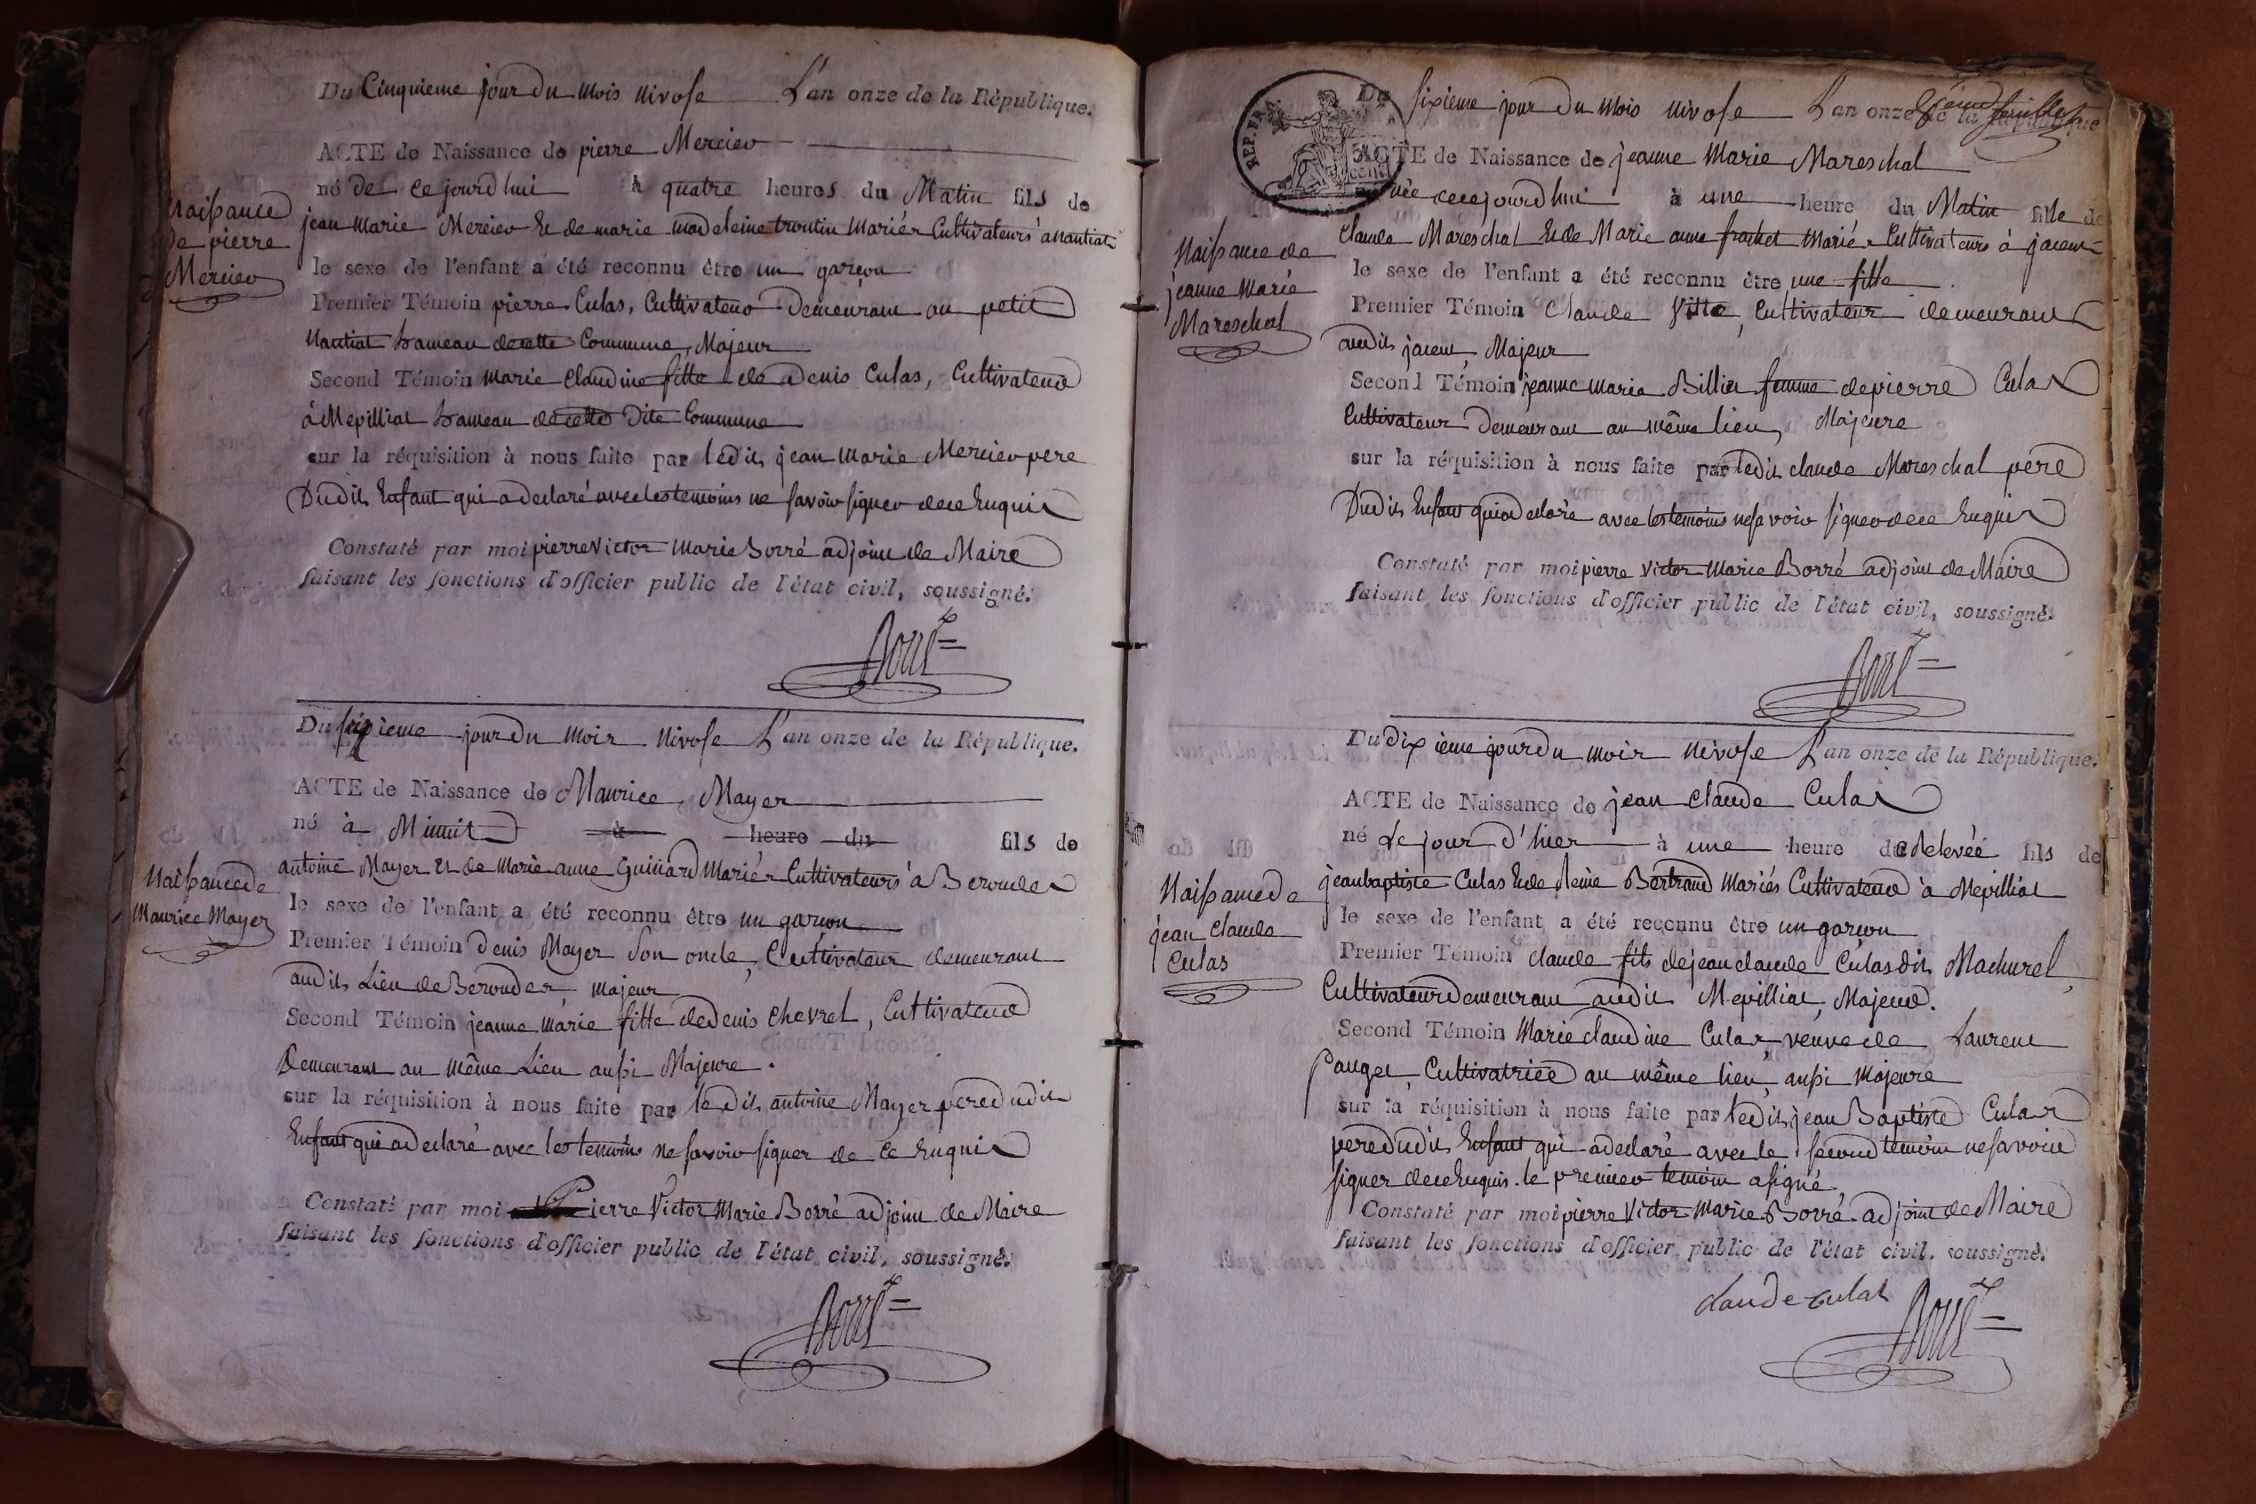 Du Cinquieme jour du mois nivose L'an onze de la République.
ACTE de Naissance de pierre Mercier
né de ce jourd'hui à quatre heures du Matin fils de
Naissance
de pierre
Mercier
jean marie Mercier Et de marie madeleine mariés Cultivateurs a nantiat
le sexe de l'enfant a été reconnu être un garçon
Premier Témoin pierre Culas, Cultivateur Demeurant au petit
Nantiat hameau de cette Commune, Majeur
Second Témoin marie Claudine fille de denis Culas, Cultivateur
à Mepilliat hameau de cette Dite Commune
sur la réquisition à nous faite par ledit jean marie Mercier pere
Dudit Enfant qui a declaré avec les temoins ne savoir signer de ce Enquis
Constaté par moi pierre Victor Marie Borré adjoint de Maire
faisant les fonctions d'officier public de l'état civil, soussigné.
Borré
Du sixieme jour du mois Nivose L'an onze de la République.
ACTE de Naissance de Maurice Mayer
né à Minuit à heure du fils de
Naissance de
Maurice Mayer
antoine Mayer et de Marie anne Guinard Mariés Cultivateurs à Beroudes
le sexe de l'enfant a été reconnu être un garçon
Premier Témoin Denis Mayer son oncle, Cultivateur demeurant
audit Lieu de Beroudes, majeur
Second Témoin jeanne marie fille de denis Chevrel, Cultivateur
Demeurant au même Lieu aussi Majeure.
sur la réquisition à nous faite par ledit antoine Mayer pere dudit
Enfant qui a declaré avec les temoins ne savoir signer de ce Enquis
Constaté par moi Pierre Victor Marie Borré adjoint de Maire
faisant les fonctions d'officier public de l'état civil, soussigné.
Borré
feuillet
REP. FRA.
Du sixieme jour du mois nivose L'an onze de la République
ACTE de Naissance de jeanne Marie Mareschal
née cejourd'hui à une heure du Matin fille de
Naissance de
jeanne Marie
Mareschal
Claude Mareschal Et de Marie anne Mariés Cultivateurs à
le sexe de l'enfant a été reconnu être une fille
Premier Témoin Claude Vitte, Cultivateur demeurant
audit Majeur
Second Témoin jeanne marie Billier femme de pierre Culas
Cultivateur Demeurant au même lieu, Majeure
sur la réquisition à nous faite par ledit claude Mareschal pere
Dudit Enfant qui a declaré avec les temoins ne savoir signer de ce Enquis
Constaté par moi pierre Victor Marie Borré adjoint de Maire
faisant les fonctions d'officier public de l'état civil, soussigné.
Borré
Du dixieme jour du mois Nivose L'an onze de la République.
ACTE de Naissance de jean Claude Culas
né Le jour d'hier à une heure de relevée fils de
Naissance de
jean Claude
Culas
jean baptiste Culas Et de Bertrand Mariés Cultivateurs à Mepilliat
le sexe de l'enfant a été reconnu être un garçon
Premier Témoin claude fils de jean claude Culas dit Machurel,
Cultivateur demeurant audit Mepilliat, Majeur.
Second Témoin Marie claudine Culas veuve de Laurent
Pauget, Cultivatrice au même lieu, aussi Majeure
sur la réquisition à nous faite par ledit jean Baptiste Culas
pere dudit Enfant qui a declaré avec le second temoin ne savoir
signer de ce Enquis. le premier temoin a signé,
Constaté par moi pierre Victor Marie Borré adjoint de Maire
faisant les fonctions d'officier public de l'état civil, soussigné.
claude culas
Borré